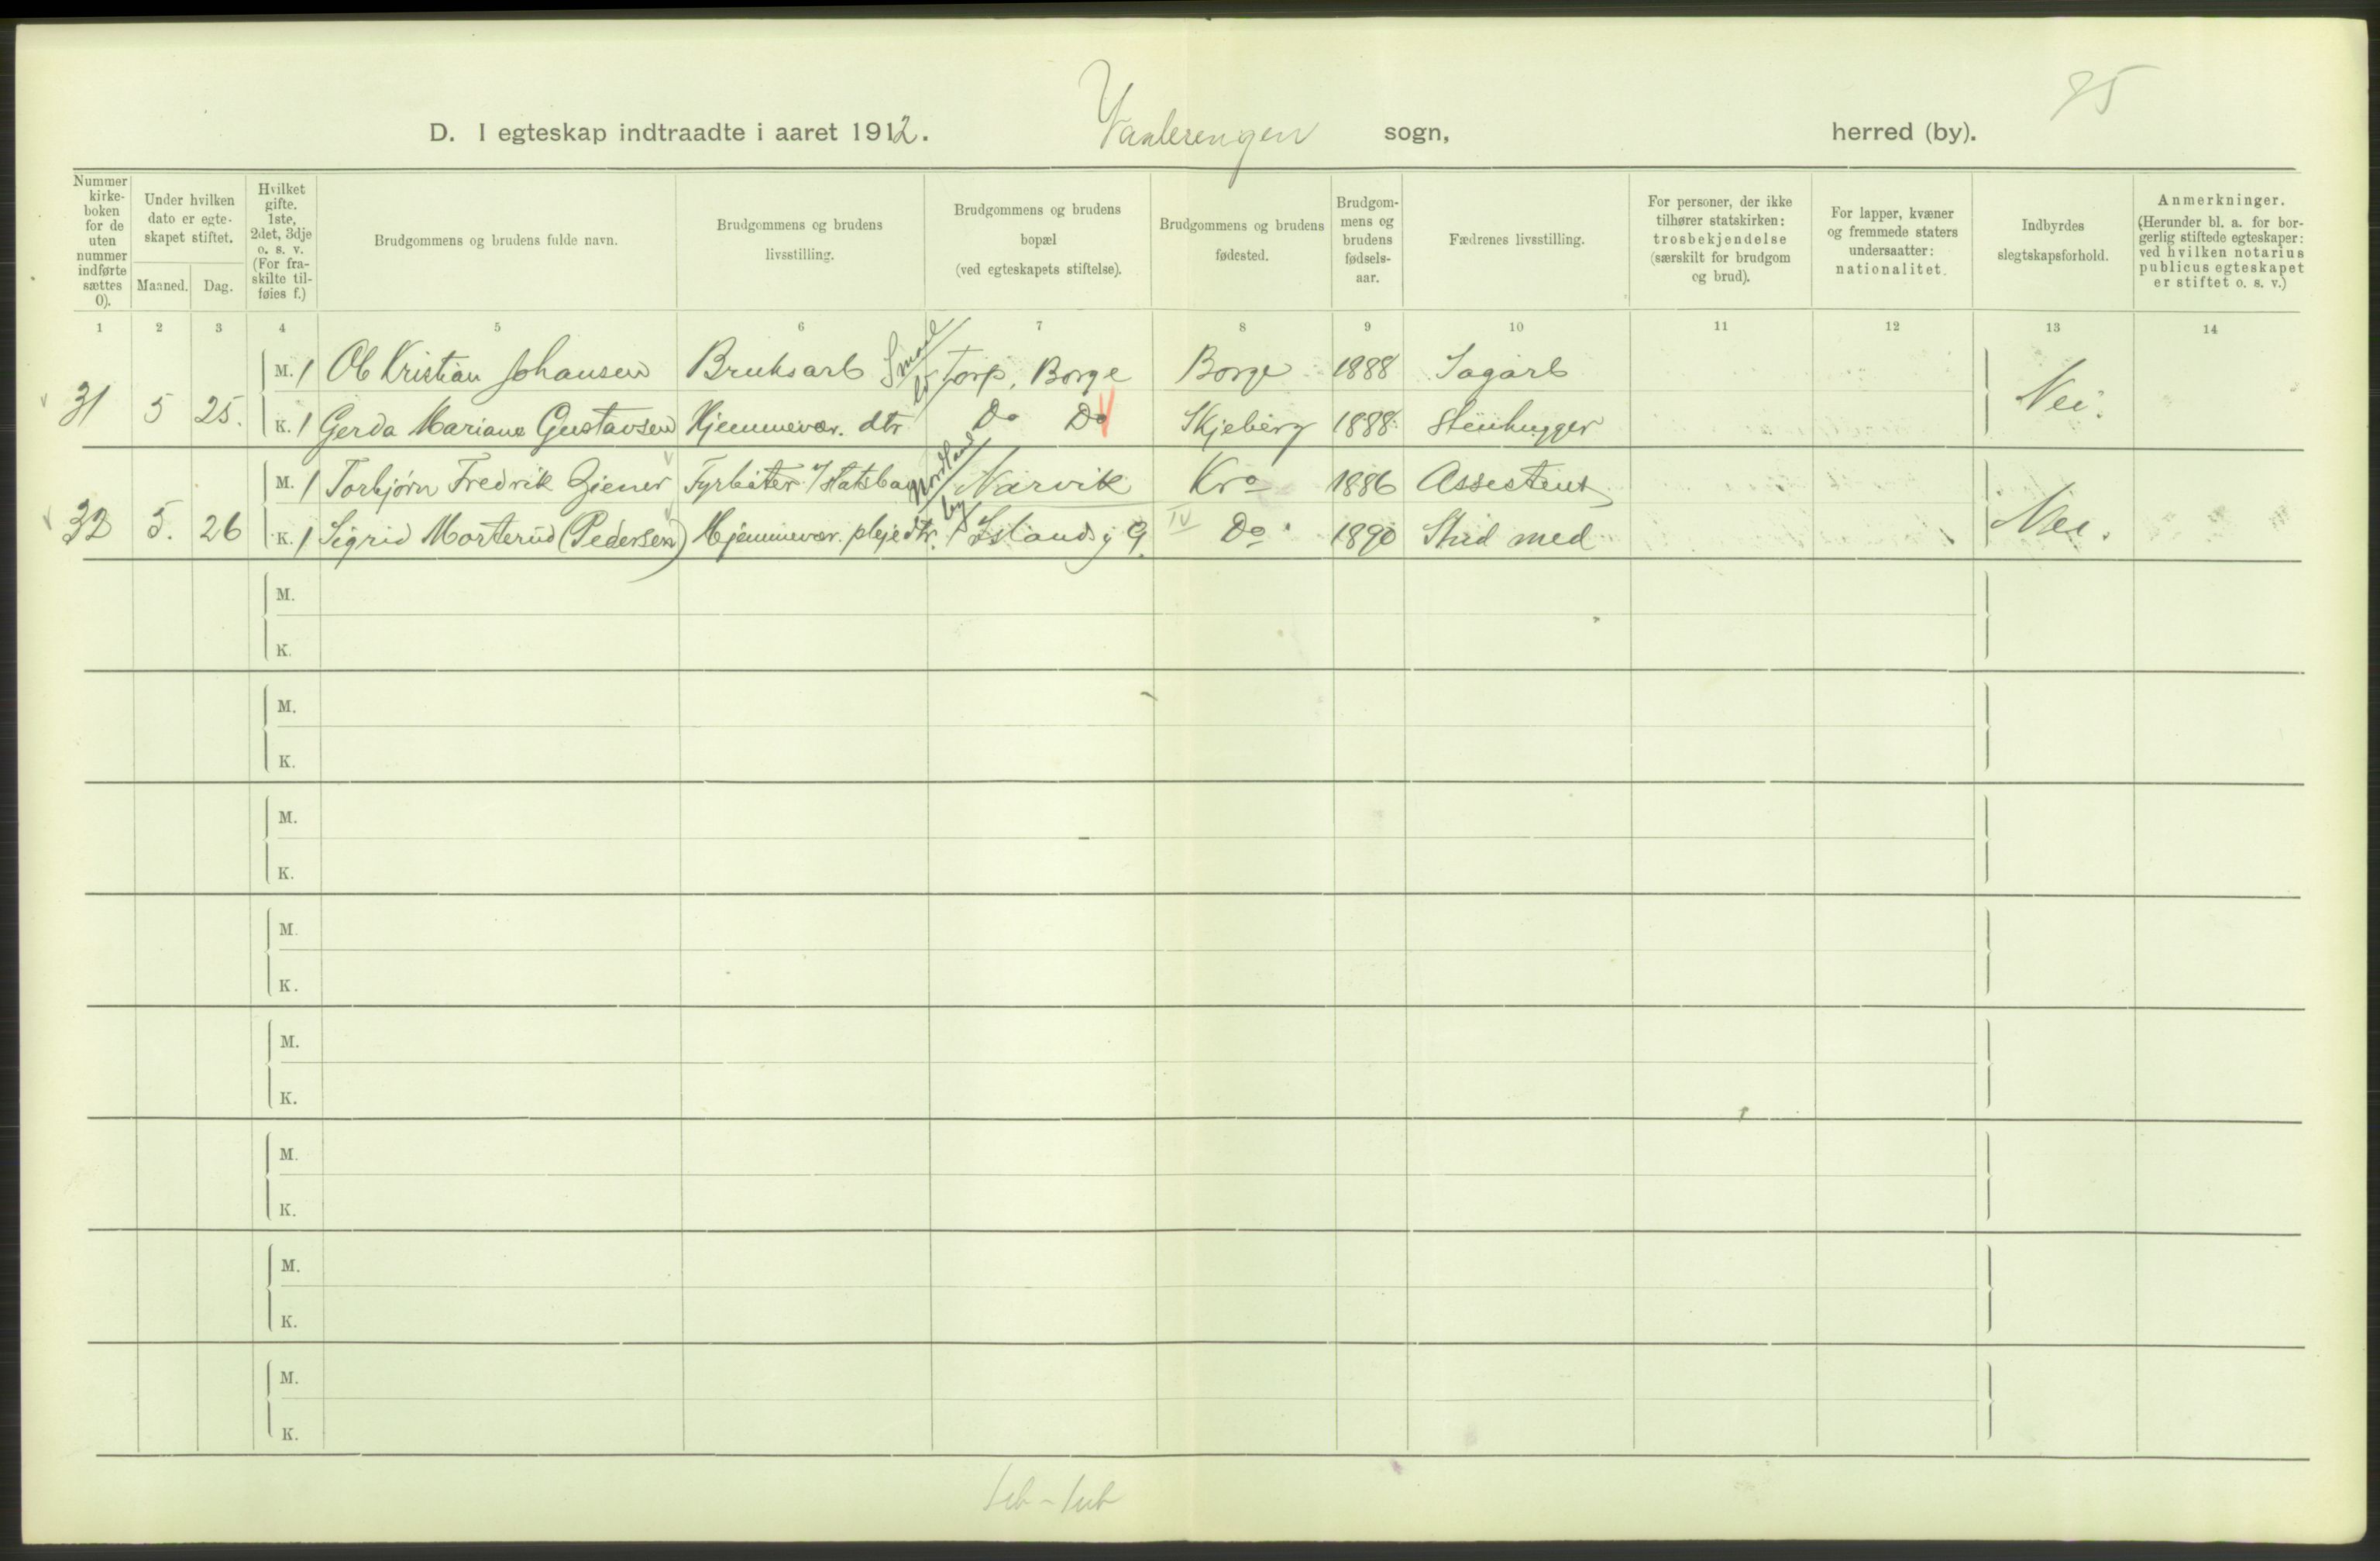 95
D. I egteskap indtraadte i aaret 1912. Vaalerengen sogn, herred (by).
Nummer kirkeboken for de uten nummer indførte sættes 0).
Under hvilken dato er egteskapet stiftet.
Maaned. Dag.
Hvilket gifte. 1ste, 2det, 3dje o. s. v. (For fraskilte tilføies f.)
Brudgommens og brudens fulde navn.
Brudgommens og brudens livsstilling.
Brudgommens og brudens bopæl (ved egteskapets stiftelse).
Brudgommens og brudens fødested.
Brudgommens og brudens fødselsaar.
Fædrenes livsstilling.
For personer, der ikke tilhører statskirken: trosbekjendelse (særskilt for brudgom og brud).
For lapper, kvæner og fremmede staters undersaatter: nationalitet.
Indbyrdes slegtskapsforhold.
Anmerkninger. (Herunder bl. a. for borgerlig stiftede egteskaper: ved hvilken notarius publicus egteskapet er stiftet o. s. v.)
1 2 3 4 5 6 7 8 9 10 11 12 13 14
M. 1 Ole Kristian Johansen Bruksarb Smaal Torp, Borge Borge 1888 Sagarb
31 5 25. Nei.
K. 1 Gerda Mariane Gustavsen Hjemmevær. dtr Do Do Skjeberg 1888 Stenhugger
M. 1 Torbjørn Fredrik Ziener Fyrbøter Nordland by Narvik Kra 1886 Assistent
32 5. 26 Nei.
K. 1 Sigrid Morterud (Pedersen) Hjemmevær. plejedtr. Islands g 9. IV Do 1890 Stud med
M.
K.
M.
K.
M.
K.
M.
K.
M.
K.
M.
K.
M.
K.
M.
K.